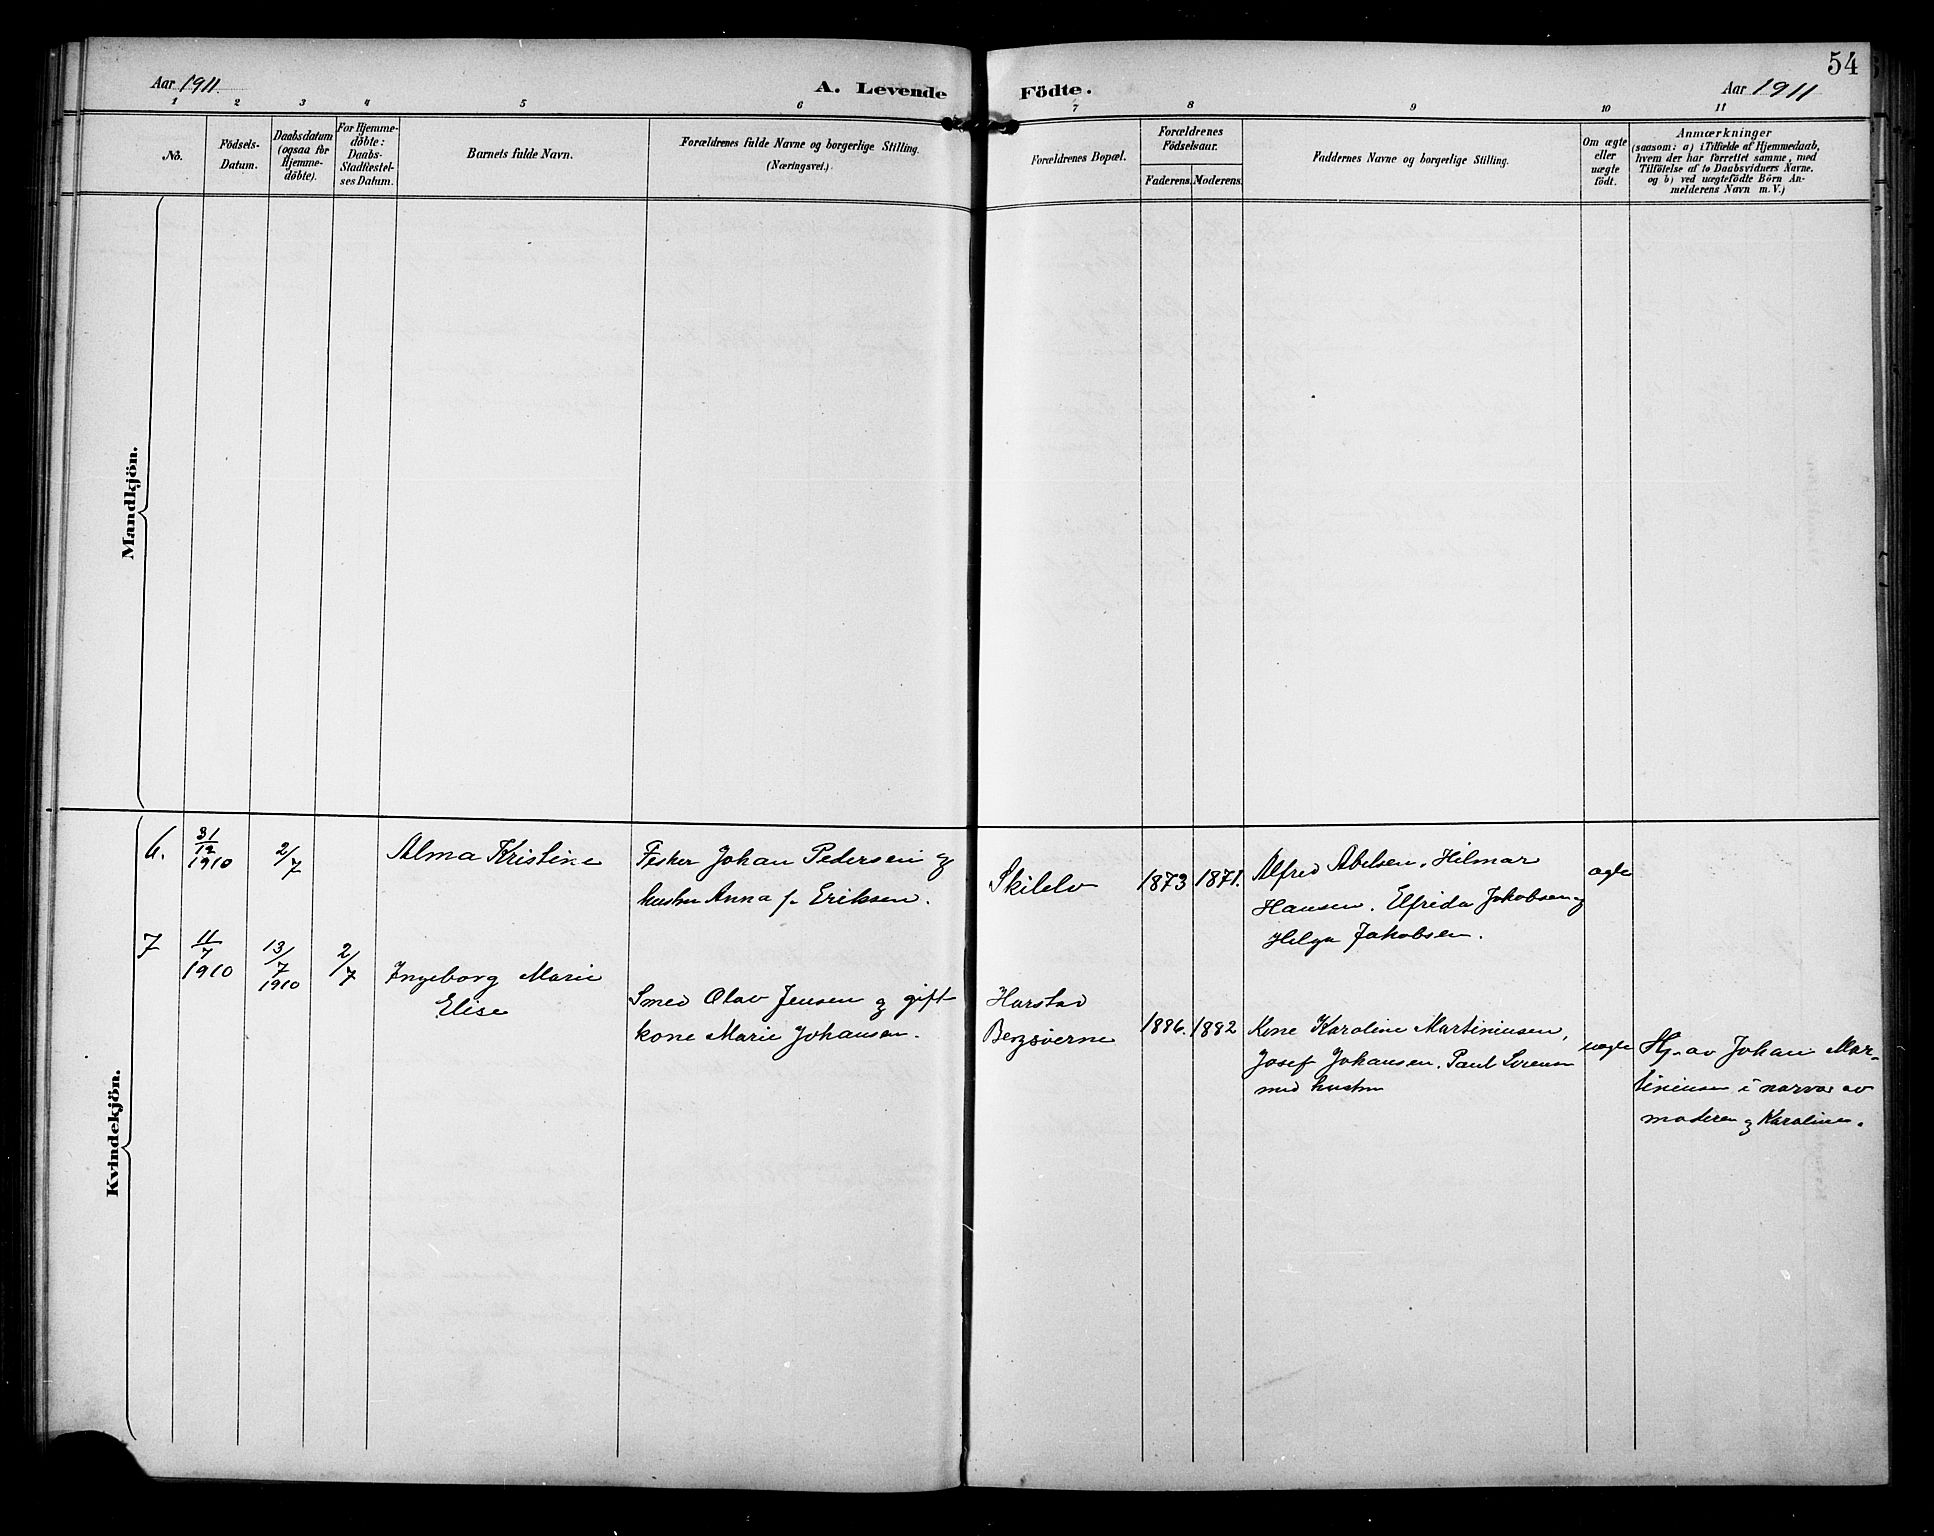 54
Aar 1911.
A. Levende Födte.
Aar 1911
1 2 3 4 5 6 7 8 9 10 11
No.
Födsels-
Datum.
Daabsdatum
(ogsaa for
Hjemme-
döbte).
For Hjemme-
döbte:
Daabs-
Stadfæstel-
ses Datum.
Barnets fulde Navn.
Forældrenes fulde Navne og borgerlige Stilling.
(Næringsvei.)
Forældrenes Bopæl.
Forældrenes
Födselsaar.
Faderens. Moderens.
Faddernes Navne og borgerlige Stilling.
Om ægte
eller
uægte
födt.
Anmærkninger
(saasom: a) i Tilfælde af Hjemmedaab,
hvem der har forrettet samme, med
Tilföielse af to Daabsvidners Navne.
og b) ved uægtefödte Börn An-
melderens Navn m. V.)
Mandkjön.
Kvindekjön.
6.
31/12
1910
2/7
Alma Kristine
Fisker Johan Pedersen og
hustru Anna f. Eriksen.
Skilelv
1873 1871.
Alfred Abelsen, Hilmar
Hansen. Elfrida Jakobsen og
Helga Jakobsen.
ægte
7
11/7
1910
13/7
1910
2/7
Ingeborg Marie
Elise
Smed Olav Jensen og gift
kone Marie Johansen.
Harstad
1886. 1882
Kone Karoline Martiniusen,
Josef Johansen, Paul Sørensen
med hustru
uægte
Hj. av Johan Mar-
tiniusen i nærvær av
moderen og Karoline.